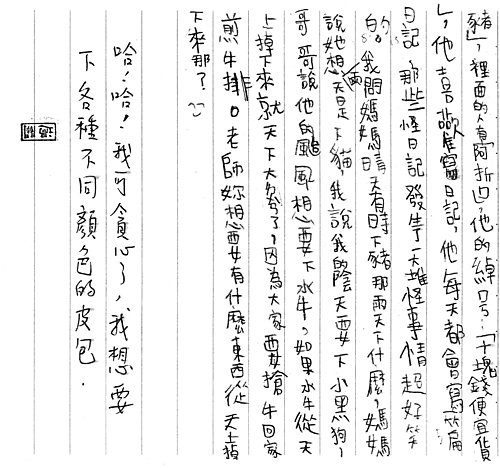 豬」，裡面的人有阿折也，他的綽号：「十塊錢便宜貨
」，他喜歡寫日記，他每天都會寫一篇
日記，那些怪日記發生了一大堆怪事情超好笑
的。我問媽媽晴天有時下豬那雨天下什麼，媽媽
說她想雨天是下貓，我說我的陰天要下小黑狗，
哥哥說他的颱風想要下水牛，如果水牛從天
上掉下來就天下大亂了，因為大家要搶牛回家
煎牛排。老師妳想要有什麼東西從天上
下來那？
哈！哈！我可貪心了，我想要
下各種不同顏色的皮包．